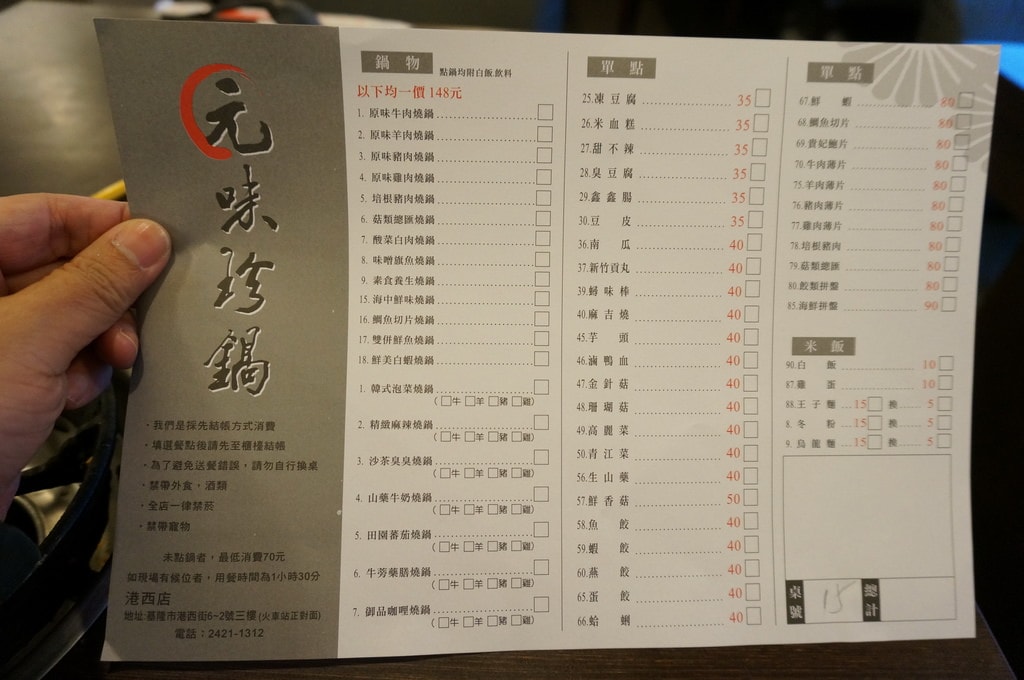 元味珍鍋
・我們是採先結帳方式消費
・填選餐點後請先至櫃檯結帳
・為了避免送餐錯誤，請勿自行換桌
・禁帶外食，酒類
・全店一律禁菸
・禁帶寵物
未點鍋者，最低消費70元
如現場有候位者，用餐時間為1小時30分
港西店
地址:基隆市港西街6~2號三樓(火車站正對面)
電話：2421-1312
鍋物 點鍋均附白飯.飲料
以下均一價 148元
1. 原味牛肉燒鍋
2. 原味羊肉燒鍋
3. 原味豬肉燒鍋
4. 原味雞肉燒鍋
5. 培根豬肉燒鍋
6. 菇類總匯燒鍋
7. 酸菜白肉燒鍋
8. 味噌旗魚燒鍋
9. 素食養生燒鍋
15. 海中鮮味燒鍋
16. 鯛魚切片燒鍋
17. 雙併鮮魚燒鍋
18. 鮮美白蝦燒鍋
1. 韓式泡菜燒鍋
(□牛□羊□豬□雞)
2. 精緻麻辣燒鍋
(□牛□羊□豬□雞)
3. 沙茶臭臭燒鍋
(□牛□羊□豬□雞)
4. 山藥牛奶燒鍋
(□牛□羊□豬□雞)
5. 田園蕃茄燒鍋
(□牛□羊□豬□雞)
6. 牛蒡藥膳燒鍋
(□牛□羊□豬□雞)
7. 御品咖哩燒鍋
(□牛□羊□豬□雞)
單點
25.凍豆腐 35
26.米血糕 35
27.甜不辣 35
28.臭豆腐 35
29.鑫鑫腸 35
30.豆皮 35
36.南瓜 40
37.新竹貢丸 40
39.蟳味棒 40
40.麻吉燒 40
45.芋頭 40
46.滷鴨血 40
47.金針菇 40
48.珊瑚菇 40
49.高麗菜 40
50.青江菜 40
56.生山藥 40
57.鮮香菇 50
58.魚餃 40
59.蝦餃 40
60.燕餃 40
65.蛋餃 40
66.蛤蜊 40
單點
67.鮮蝦 80
68.鯛魚切片 80
69.貴妃鮑片 80
70.牛肉薄片 80
75.羊肉薄片 80
76.豬肉薄片 80
77.雞肉薄片 80
78.培根豬肉 80
79.菇類總匯 80
80.餃類拼盤 80
85.海鮮拼盤 90
米飯
90.白飯 10
87.雞蛋 10
88.王子麵 15 換 5
8.冬粉 15 換 5
9.烏龍麵 15 換 5
桌號 15 總計